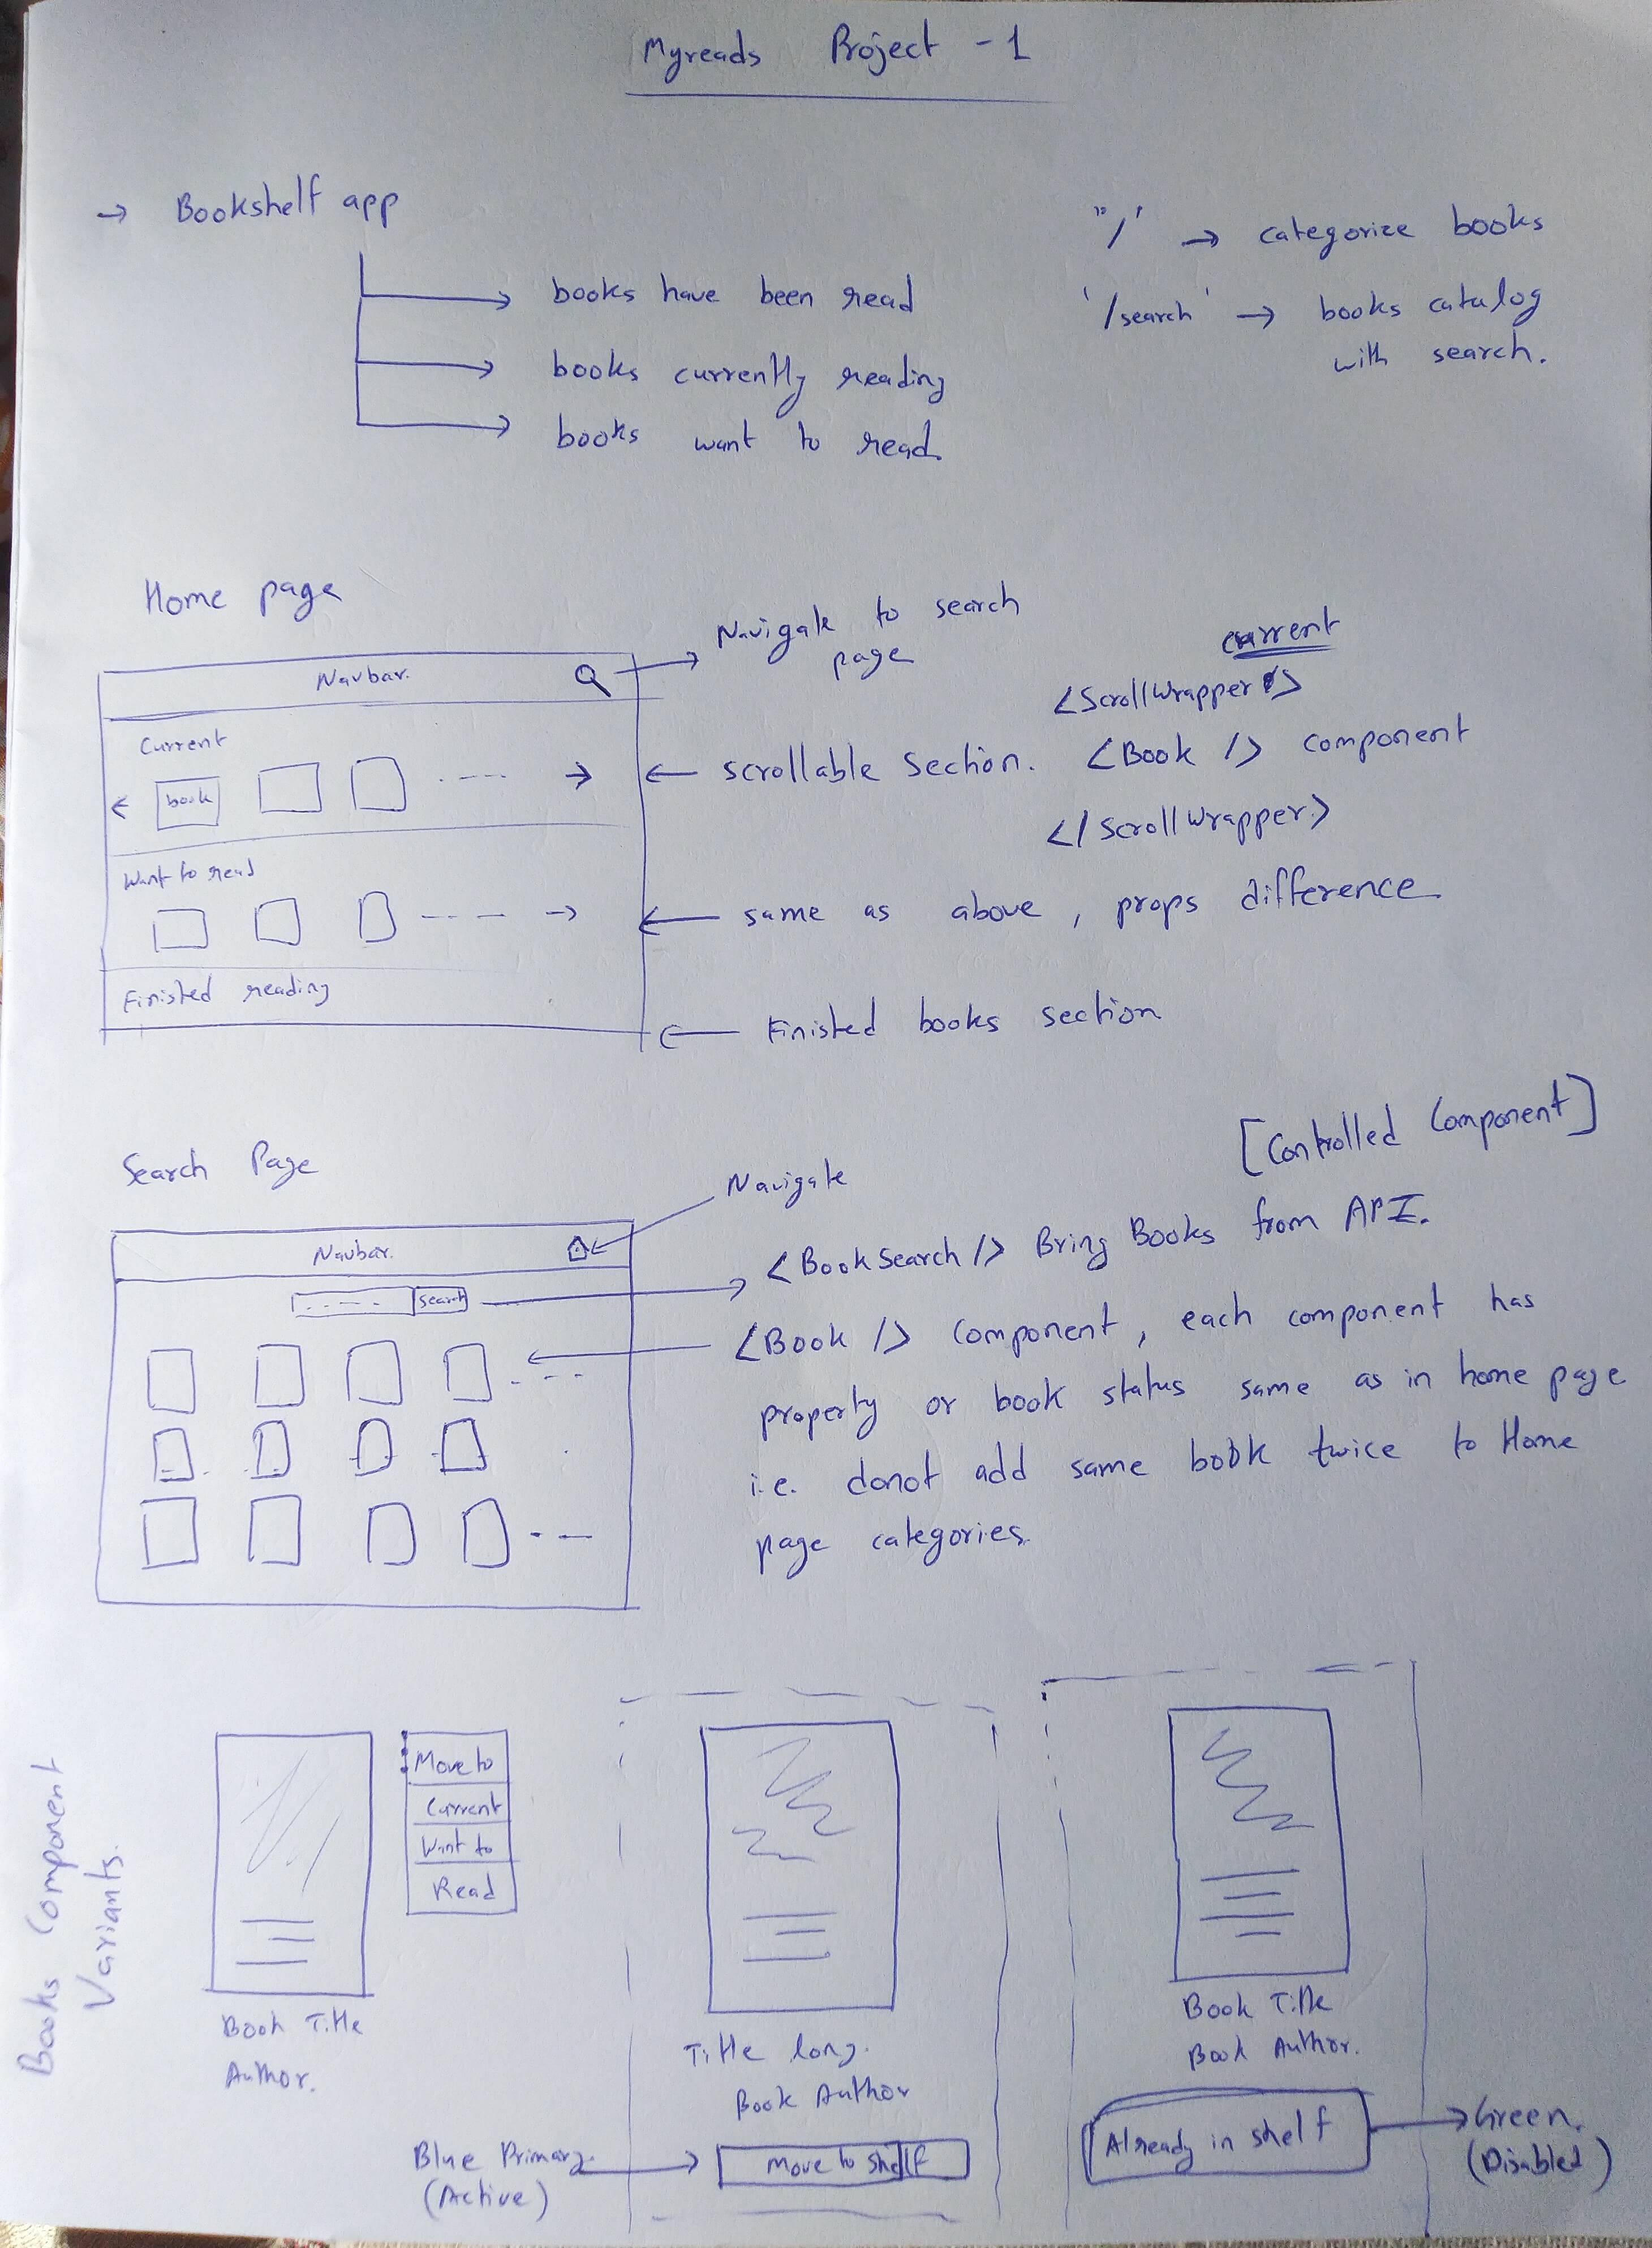 Myreads Project - 1
→ Bookshelf app
books have been read
books currently reading
books want to read
"/' → categorize books
'/search' → books catalog
with search.
Home page
Navbar.
Navigate to search
page
Current
book
Want to read
Finished reading
current
<ScrollWrapper>
← scrollable section. <Book /> component
</ScrollWrapper>
← same as above, props difference
← Finished books section
Search Page
Navbar.
Navigate
search
[Controlled Component]
<BookSearch /> Bring Books from API.
<Book /> Component, each component has
property or book status same as in home page
i.e. donot add same book twice to Home
page categories.
Books Component
Variants.
Move to
Current
Want to
Read
Book Title
Author.
Title long.
Book Author
Blue Primary
(Active)
Move to shelf
Book Title
Book Author.
Already in shelf
Green.
(Disabled)